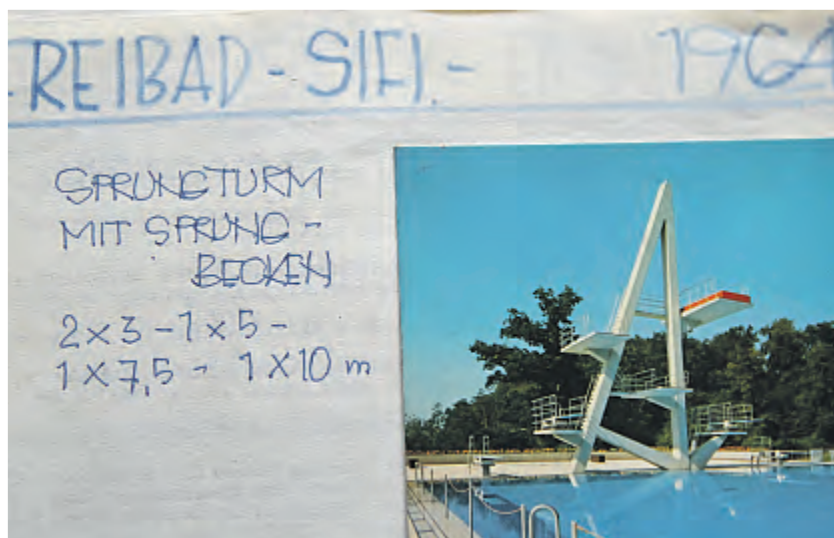 FREIBAD - SIFI. - 1964
SPRUNGTURM
MIT SPRUNG -
BECKEN
2 x 3 - 1 x 5 -
1 x 7,5 - 1 x 10 m